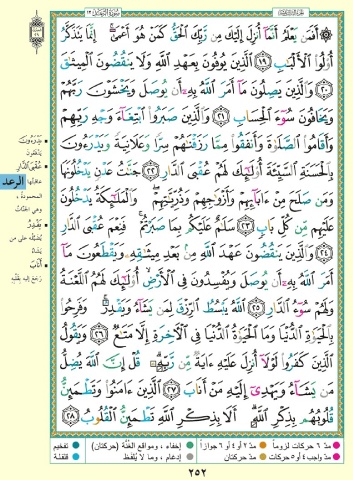 سورة الرعد ١٣
أَفَمَن يَعْلَمُ أَنَّمَا أُنزِلَ إِلَيْكَ مِن رَّبِّكَ الْحَقُّ كَمَنْ هُوَ أَعْمَىٰ إِنَّمَا يَتَذَكَّرُ
أُوْلُوا الْأَلْبَابِ ١٩ الَّذِينَ يُوفُونَ بِعَهْدِ اللَّهِ وَلَا يَنقُضُونَ الْمِيثَاقَ
٢٠ وَالَّذِينَ يَصِلُونَ مَا أَمَرَ اللَّهُ بِهِ أَن يُوصَلَ وَيَخْشَوْنَ رَبَّهُمْ
وَيَخَافُونَ سُوءَ الْحِسَابِ ٢١ وَالَّذِينَ صَبَرُوا ابْتِغَاءَ وَجْهِ رَبِّهِمْ
وَأَقَامُوا الصَّلَاةَ وَأَنفَقُوا مِمَّا رَزَقْنَاهُمْ سِرًّا وَعَلَانِيَةً وَيَدْرَءُونَ
بِالْحَسَنَةِ السَّيِّئَةَ أُولَٰئِكَ لَهُمْ عُقْبَى الدَّارِ ٢٢ جَنَّاتُ عَدْنٍ يَدْخُلُونَهَا
وَمَن صَلَحَ مِنْ ءَابَائِهِمْ وَأَزْوَاجِهِمْ وَذُرِّيَّاتِهِمْ وَالْمَلَائِكَةُ يَدْخُلُونَ
عَلَيْهِم مِّن كُلِّ بَابٍ ٢٣ سَلَامٌ عَلَيْكُم بِمَا صَبَرْتُمْ فَنِعْمَ عُقْبَى الدَّارِ
٢٤ وَالَّذِينَ يَنقُضُونَ عَهْدَ اللَّهِ مِن بَعْدِ مِيثَاقِهِ وَيَقْطَعُونَ مَا
أَمَرَ اللَّهُ بِهِ أَن يُوصَلَ وَيُفْسِدُونَ فِي الْأَرْضِ أُولَٰئِكَ لَهُمُ اللَّعْنَةُ
وَلَهُمْ سُوءُ الدَّارِ ٢٥ اللَّهُ يَبْسُطُ الرِّزْقَ لِمَن يَشَاءُ وَيَقْدِرُ وَفَرِحُوا
بِالْحَيَاةِ الدُّنْيَا وَمَا الْحَيَاةُ الدُّنْيَا فِي الْآخِرَةِ إِلَّا مَتَاعٌ ٢٦ وَيَقُولُ
الَّذِينَ كَفَرُوا لَوْلَا أُنزِلَ عَلَيْهِ ءَايَةٌ مِّن رَّبِّهِ قُلْ إِنَّ اللَّهَ يُضِلُّ
مَن يَشَاءُ وَيَهْدِي إِلَيْهِ مَنْ أَنَابَ ٢٧ الَّذِينَ ءَامَنُوا وَتَطْمَئِنُّ
قُلُوبُهُم بِذِكْرِ اللَّهِ أَلَا بِذِكْرِ اللَّهِ تَطْمَئِنُّ الْقُلُوبُ ٢٨
يَدْرَءُونَ
يدفعون
عُقْبَى الدَّارِ
عاقبتها
المحمودة،
وهي الجنات
الرعد
يَقْدِرُ
يضيّقه على من
يشاء
أَنَابَ
رجع إليه بقلبه
مدّ ٦ حركات لزوماً
مدّ ٢ أو ٤ أو ٦ جوازاً
إخفاء، ومواقع الغنّة (حركتان)
تفخيم
مدّ واجب ٤ أو ٥ حركات
مدّ حركتان
إدغام، وما لا يُلفظ
قلقلة
٢٥٢